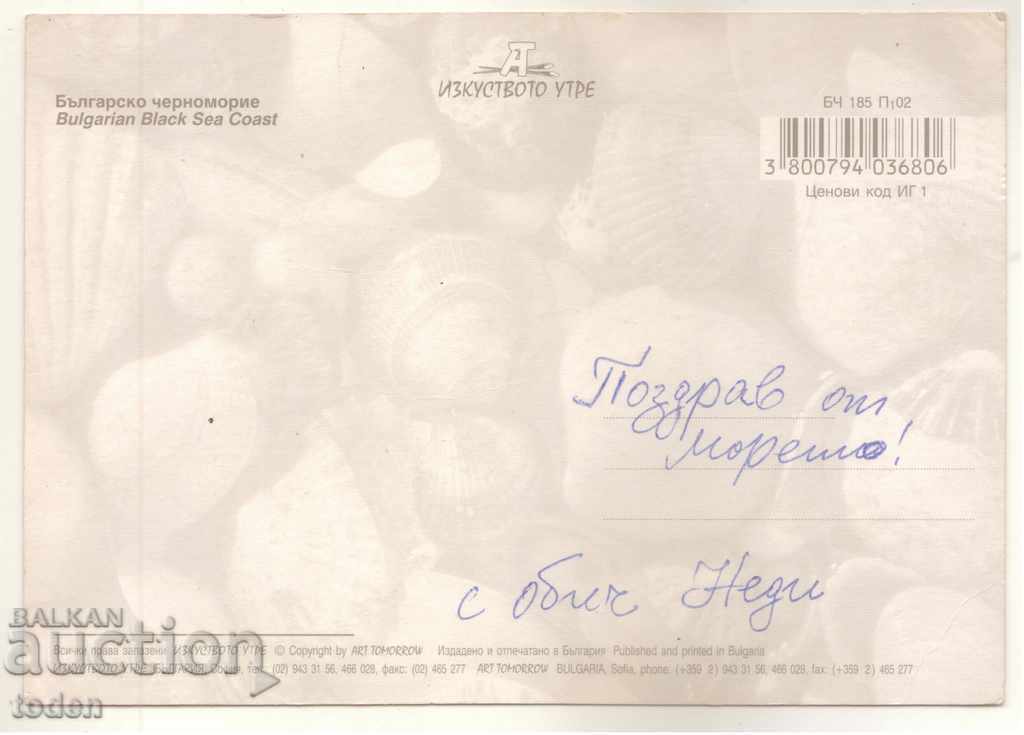 Българско черноморие
Bulgarian Black Sea Coast
АТ
ИЗКУСТВОТО УТРЕ
БЧ 185 П₁02
3 800794 036806
Ценови код ИГ 1
Поздрав от
морето!
с обич Неди
Всички права запазени ИЗКУСТВОТО УТРЕ © Copyright by ART TOMORROW Издадено и отпечатано в България Published and printed in Bulgaria
ИЗКУСТВОТО УТРЕ БЪЛГАРИЯ, София, тел.: (02) 943 31 56, 466 028, факс: (02) 465 277 ART TOMORROW BULGARIA, Sofia, phone: (+359 2) 943 31 56, 466 028, fax: (+359 2) 465 277
BALKAN
auction
toden